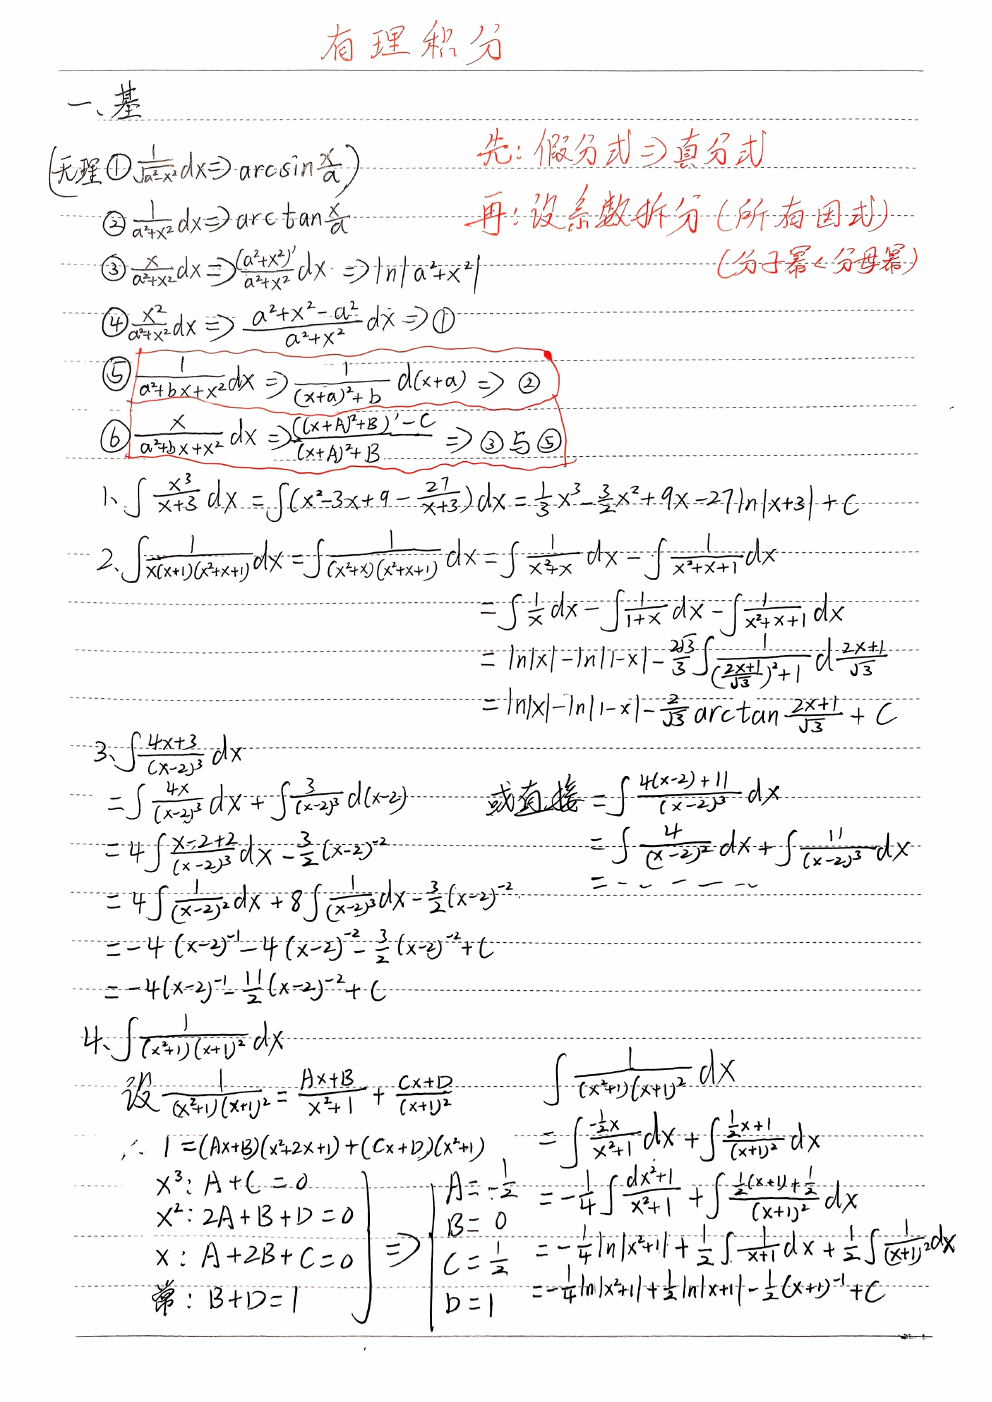 有理积分
一、基
(无理 ① 1/√(a²-x²) dx ⇒ arcsin x/a)
先: 假分式 ⇒ 真分式
② 1/(a²+x²) dx ⇒ arctan x/a
再: 设系数拆分 (所有因式)
(分子幂 < 分母幂)
③ x/(a²+x²) dx ⇒ (a²+x²)'/(a²+x²) dx ⇒ ln|a²+x²|
④ x²/(a²+x²) dx ⇒ (a²+x²-a²)/(a²+x²) dx ⇒ ①
⑤ 1/(a²+bx+x²) dx ⇒ 1/((x+a)²+b) d(x+a) ⇒ ②
⑥ x/(a²+bx+x²) dx ⇒ (((x+A)²+B)'-C)/((x+A)²+B) ⇒ ③与⑤
1、∫ x³/(x+3) dx = ∫(x²-3x+9 - 27/(x+3)) dx = 1/3 x³ - 3/2 x² + 9x - 27 ln|x+3| + C
2、∫ 1/(x(x+1)(x²+x+1)) dx = ∫ 1/((x²+x)(x²+x+1)) dx = ∫ 1/(x²+x) dx - ∫ 1/(x²+x+1) dx
= ∫ 1/x dx - ∫ 1/(1+x) dx - ∫ 1/(x²+x+1) dx
= ln|x| - ln|1-x| - 2√3/3 ∫ 1/(((2x+1)/√3)²+1) d (2x+1)/√3
= ln|x| - ln|1-x| - 2/√3 arctan (2x+1)/√3 + C
3、∫ (4x+3)/(x-2)³ dx
= ∫ 4x/(x-2)³ dx + ∫ 3/(x-2)³ d(x-2)
= 4∫ (x-2+2)/(x-2)³ dx - 3/2 (x-2)⁻²
= 4∫ 1/(x-2)² dx + 8∫ 1/(x-2)³ dx - 3/2 (x-2)⁻²
= -4(x-2)⁻¹ - 4(x-2)⁻² - 3/2 (x-2)⁻² + C
= -4(x-2)⁻¹ - 11/2 (x-2)⁻² + C
或直接 = ∫ (4(x-2)+11)/(x-2)³ dx
= ∫ 4/(x-2)² dx + ∫ 11/(x-2)³ dx
= - - - - -
4、∫ 1/((x²+1)(x+1)²) dx
设 1/((x²+1)(x+1)²) = (Ax+B)/(x²+1) + (Cx+D)/(x+1)²
∴ 1 = (Ax+B)(x²+2x+1) + (Cx+D)(x²+1)
x³: A+C=0
x²: 2A+B+D=0
x: A+2B+C=0
常: B+D=1
⇒
A = -1/2
B = 0
C = 1/2
D = 1
∫ 1/((x²+1)(x+1)²) dx
= ∫ (-1/2 x)/(x²+1) dx + ∫ (1/2 x+1)/(x+1)² dx
= -1/4 ∫ dx²+1/(x²+1) + ∫ (1/2(x+1)+1/2)/(x+1)² dx
= -1/4 ln|x²+1| + 1/2 ∫ 1/(x+1) dx + 1/2 ∫ 1/(x+1)² dx
= -1/4 ln|x²+1| + 1/2 ln|x+1| - 1/2 (x+1)⁻¹ + C